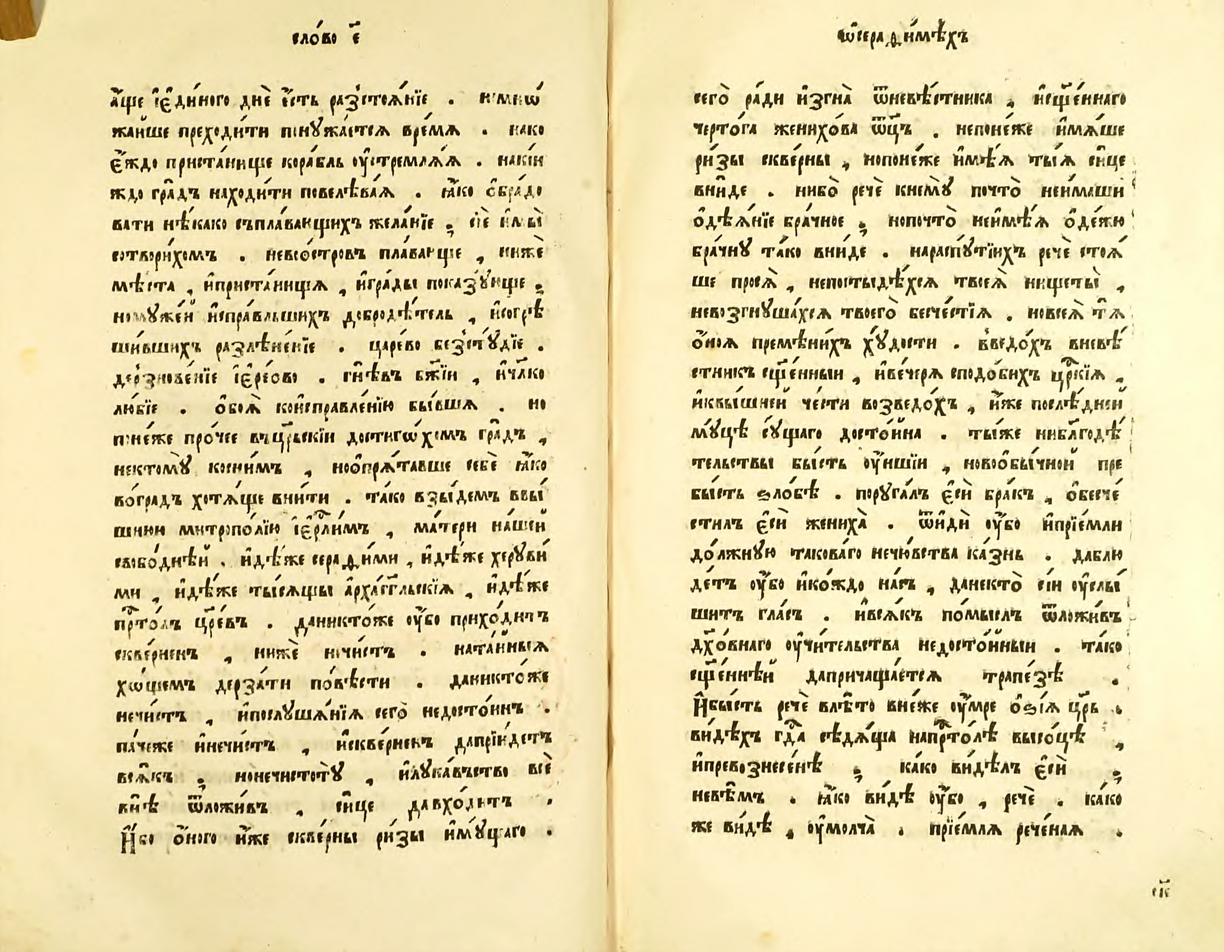 сло́во е҃
а҆́ще і҆еди́ного днѐ є҆́сть разстоѧ́нїе . нѝмеѡ
жа́йше преходи́ти понꙋжа́етсѧ вре́мѧ . нако
є҆́ждо приста́нище кора́бль оу҆стремлѧ́ѧ . наки́и
ждо гра́дъ находи́ти повелѣва́ѧ . ꙗ҆́ко ѡ҆бра́до
вати нѣ́како съпла́вающихъ жела́нїе , сїѐ и҆ мы̀
сотвори́хомъ . невоо́стровъ пла́вающе , нижѐ
мѣ́ста , и҆приста́нища , и҆гра́ды показꙋ́юще ,
но мꙋже́й и҆спра́вльшихъ добродѣ́тель , и҆согрѣ
ши́вшихъ разлѣне́нїе . царе́во безстꙋ́дїе .
дерзнове́нїе і҆ере́ово . гнѣ́въ бж҃їи , и҆чл҃ко
лю́бїе . ѻ҆боѧ̀ коисправле́нїю бы́вша . но
поне́же про́чее въца́рьскїи дости́гѡхомъ гра́дъ ,
нектомꙋ̀ косни́мъ , ноѡпрѧ́тавше себѐ ꙗ҆́ко
во́градъ хотѧ́ще вни́ти . та́ко взы́демъ ввы́
шнюю митропо́лїю і҆ер҃ли́мъ , ма́тери на́шей
свобо́днѣй . и҆дѣ́же серафи́ми , и҆дѣ́же херꙋ́ви
ми , и҆дѣ́же ты́сѧщы а҆рха́гг҃льскїѧ , и҆дѣ́же
прⷭ҇то́лъ цр҃е́въ . даникто́же оу҆̀бо прихо́дитъ
скве́рненъ , нижѐ нечи́стъ . ната́йныѧ
хо́щемъ дерза́ти по́вѣсти . даникто́же
нечи́стъ , и҆послꙋша́нїѧ сего̀ недосто́инъ .
па́чеже и҆нечи́стъ , и҆скве́рненъ даприи́детъ
всѧ́къ , нонечистотꙋ̀ , и҆лꙋ́ка́въство всѐ
внѣ̀ ѿложи́въ , си́це давхо́дитъ .
И҆́бо ѻ҆́ного и҆́же скве́рны ри́зы и҆мꙋ́щаго .
ѡ҆серафи́мѣхъ
сего̀ ра́ди и҆згна̀ ѿневѣ́стника , и҆сщ҃е́ннаго
черто́га женихо́ва ѻ҆ц҃ъ . непоне́же и҆мѧ́ше
ри́зы скве́рны , нопоне́же и҆мѣ́ѧ ты́ѧ си́це
вни́де . ни́бо речѐ кнемꙋ̀ почто̀ неи́маши
ѻ҆дѣѧ́нїе бра́чное , нопочто̀ неимѣ́ѧ ѻ҆де́жю
бра́чнꙋ та́ко вни́де . нараспꙋ́тїихъ речѐ стоѧ́
ше просѧ̀ , непостыдѣ́хсѧ твоеѧ̀ нищеты̀ ,
невозгнꙋша́хсѧ твоего̀ бесче́стїѧ . новсеѧ̀ тѧ̀
ѻ҆́ноѧ преме́нихъ хꙋ́дости . введо́хъ вневѣ́
стникъ сщ҃е́нныи , и҆ве́черѧ сподо́бихъ цр҃кїѧ ,
и҆квы́шней че́сти возведо́хъ , и҆́же послѣ́дней
мꙋ́цѣ сꙋ́щаго досто́йна . ты́же ниблагодѣ́
тельствы бы́сть оу҆́ншїи , новоѡбы́чной пре
бы́сть ѕло́бѣ . порꙋга́лъ є҆сѝ бра́къ , ѡ҆бесче́
стилъ є҆сѝ жениха̀ . ѿидѝ оу҆̀бо и҆прїемлѝ
до́лжнꙋю такова́го нечю́вства ка́знь . даблю
де́тъ оу҆̀бо и҆ко́ждо на́съ , данекто̀ сїи оу҆слы́
шитъ гла́съ . и҆всѧ́къ по́мыслъ ѿложи́въ
дх҃о́внаго оу҆чи́тельства недосто́йныи . та́ко
сщ҃е́ннѣй дапричаща́етсѧ трапе́зѣ .
И҆бы́сть речѐ влѣ́то вне́же оу҆́мре ѻ҆ѕі́ѧ цр҃ь .
ви́дѣхъ гдⷭ҇а сѣдѧ́ща напрⷭ҇то́лѣ высо́цѣ ,
и҆превознесе́нѣ , ка́ко ви́дѣлъ є҆сѝ ,
невѣ́мъ . ꙗ҆́ко ви́дѣ оу҆̀бо , речѐ . ка́ко
же ви́дѣ , оу҆молча̀ . прїе́млѧ рече́наѧ .
си҃